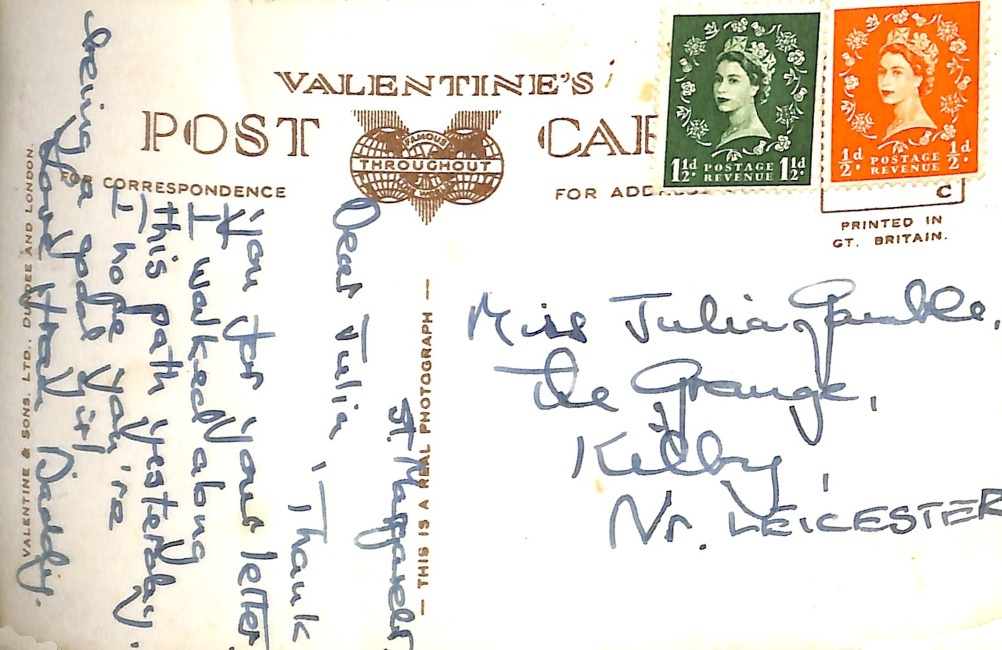 VALENTINE'S
POST CAR
FAMOUS
THROUGHOUT
FOR CORRESPONDENCE
FOR ADD
1½d POSTAGE 1½d
REVENUE
½d POSTAGE ½d
REVENUE
C
PRINTED IN
GT. BRITAIN.
VALENTINE & SONS, LTD., DUNDEE AND LONDON.
— THIS IS A REAL PHOTOGRAPH —
St. Margaret
Dear Julia, Thank
you for your letter.
I walked along
this path yesterday.
I hope you're
being a good girl
Love from Daddy.
Miss Julia Gamble,
The Grange,
Kilby,
Nr. LEICESTER